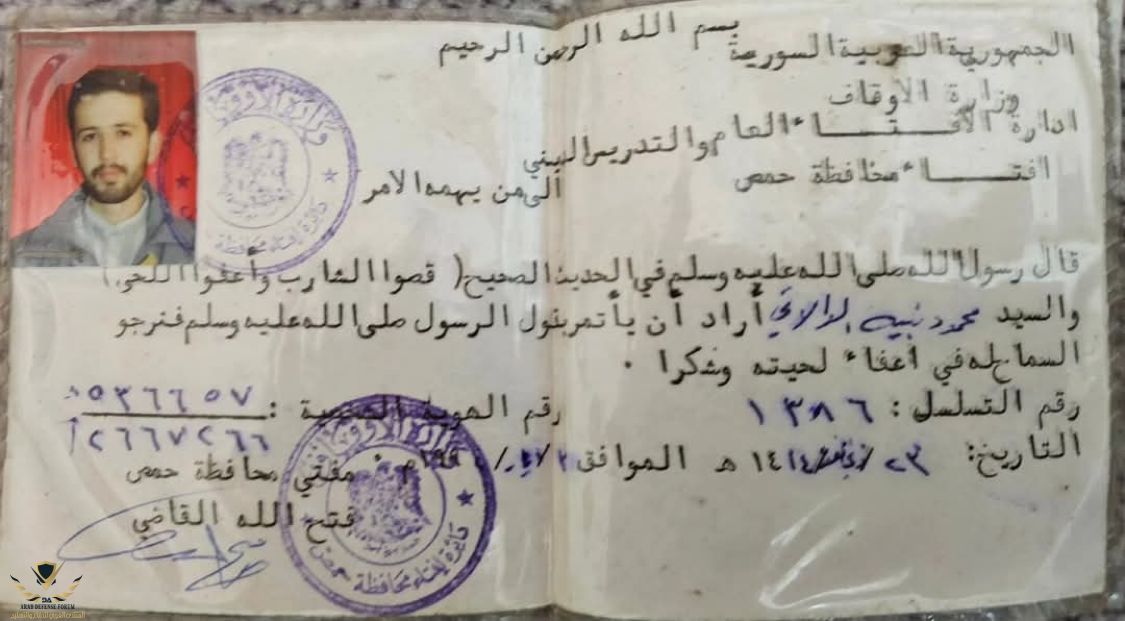 بسم الله الرحمن الرحيم
الجمهورية العربية السورية
وزارة الاوقاف
ادارة الافتـــاء العام والتدريس الديني
افتـــاء محافظة حمص
الى من يهمه الامر
قال رسول الله صلى الله عليه وسلم في الحديث الصحيح ( قصوا الشارب وأعفوا اللحى )
والسيد محمود نبيه الدالاتي أراد أن يأتمر بقول الرسول صلى الله عليه وسلم فنرجو
السماح له في اعفاء لحيته وشكرا .
رقم التسلسل : ١٣٨٦ رقم الهوية الشخصية : ٥٣٦٦٥٧
٢٦٦٧٢٦٦
التاريخ: ٢٣ / ١٤١٤ هـ الموافق / / م
مفتي محافظة حمص
فتح الله القاضي
وزارة الأوقاف
دائرة إفتاء محافظة
وزارة الأوقاف
دائرة إفتاء محافظة حمص
ARAB DEFENSE FORUM